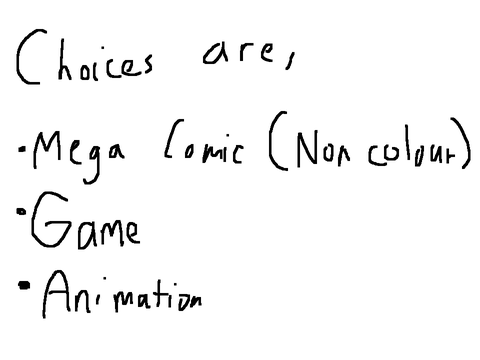 Choices are,
• Mega Comic (Non colour)
• Game
• Animation